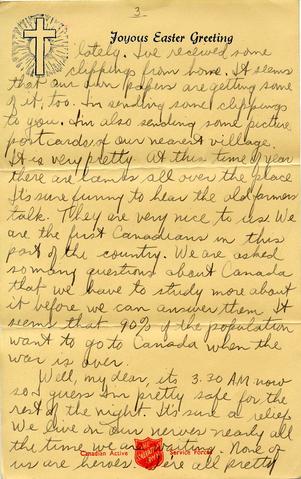 3
Joyous Easter Greeting
lately. I've received some
clippings from home. It seems
that our own papers are getting some
of it, too. I'm sending some clippings
to you. I'm also sending some picture
postcards of our nearest village.
It is very pretty. At this time of year
there are lambs all over the place
It's sure funny to hear the old farmers
talk. They are very nice to us. We
are the first Canadians in this
part of the country. We are asked
so many questions about Canada
that we have to study more about
it before we can answer them. It
seems that 90% of the population
want to go to Canada when the
war is over.
Well, my dear, its 3.30 AM now
so I guess I'm pretty safe for the
rest of the night. It's sure a relief.
We live on our nerves nearly all
the time we are waiting. None of
Canadian Active Service Forces
us are heroes. We're all pretty